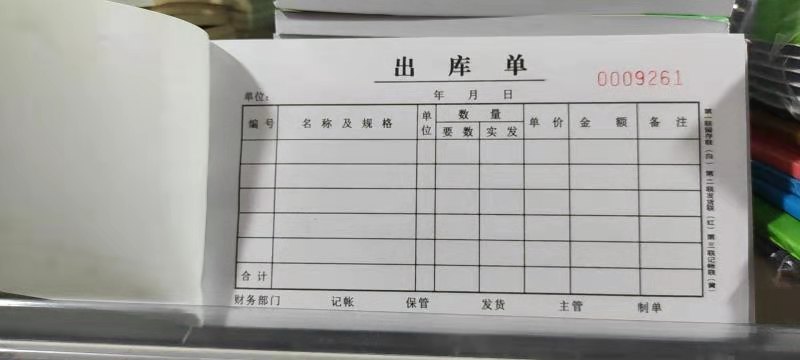 出库单
0009261
单位：
年 月 日
编号 名称及规格 单位 数量 单价 金额 备注
要数 实发
合计
财务部门 记帐 保管 发货 主管 制单
第一联留存联（白） 第二联发货联（红） 第三联记账联（黄）